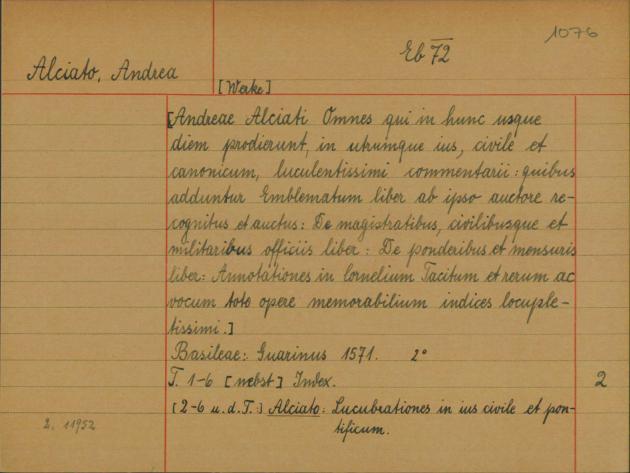 1076
Eb 72
Alciato, Andrea
[Werke]
[Andreae Alciati Omnes qui in hunc usque
diem prodierunt, in utrumque ius, civile et
canonicum, luculentissimi commentarii: quibus
adduntur Emblematum liber ab ipso auctore re-
cognitus et auctus: De magistratibus, civilibusque et
militaribus officiis liber: De ponderibus et mensuris
liber: Annotationes in Cornelium Tacitum et rerum ac
vocum toto opere memorabilium indices locuple-
tissimi.]
Basileae: Guarinus 1571. 2°
T. 1-6 [nebst] Index. 2
[2-6 u. d. T.:] Alciato: Lucubrationes in ius civile et pon-
tificum.
2. 11952